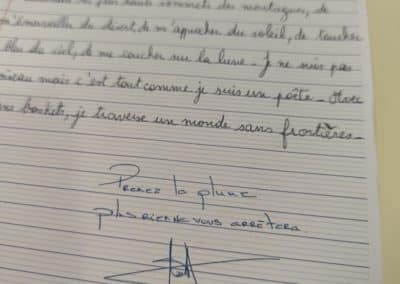 plus hauts sommets des montagnes, de
m'émerveiller du désert, de m'approcher du soleil, de toucher
bleu du ciel, de me coucher sur la lune. Je ne suis pas
mais c'est tout comme je suis un poète. Avec
baskets, je traverse un monde sans frontières.
Prenez la plume
plus rien ne vous arrêtera